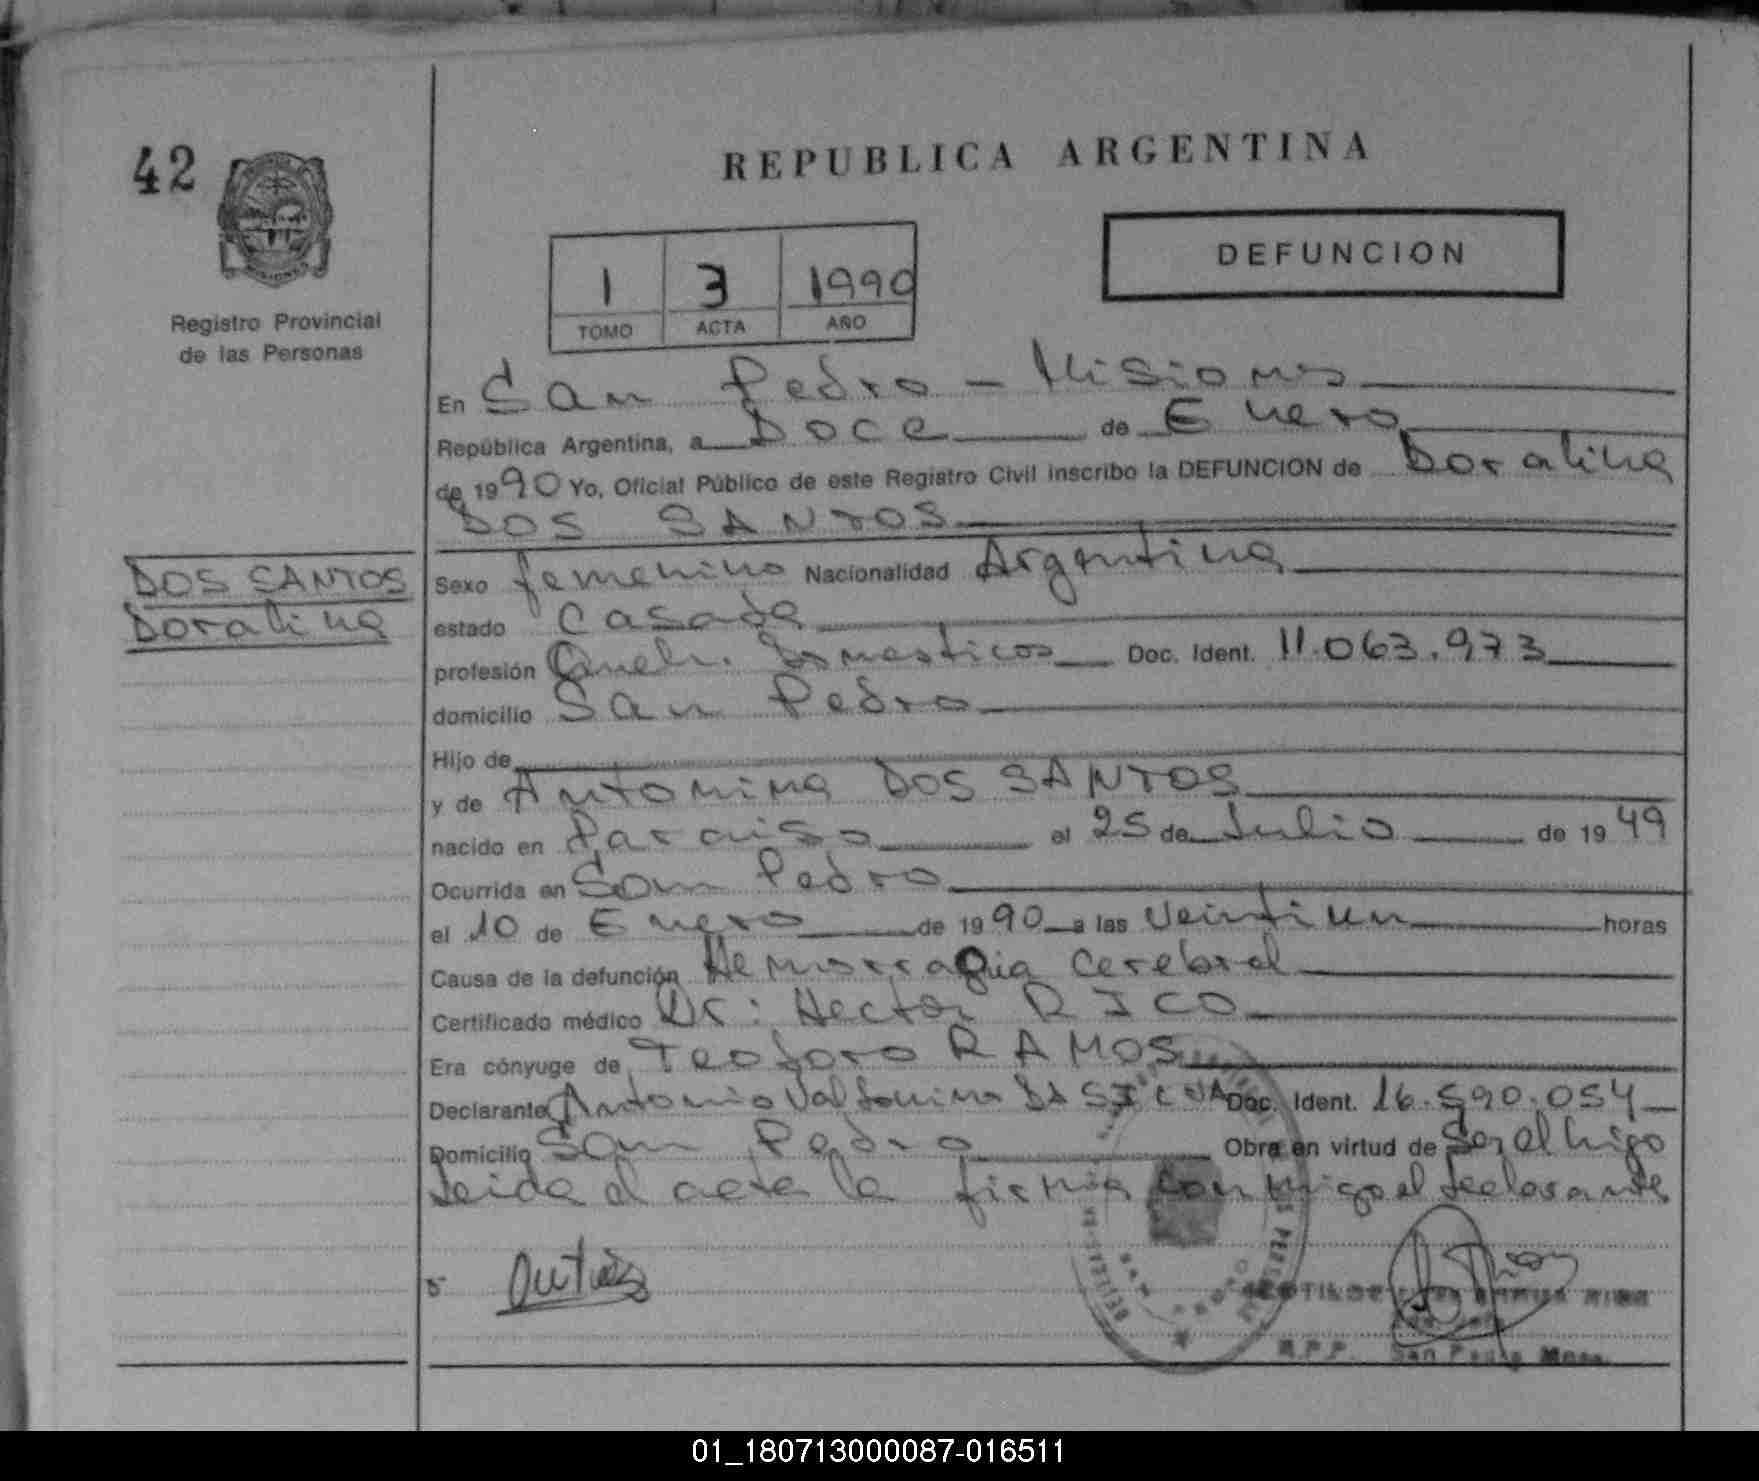 42
REPUBLICA ARGENTINA
DEFUNCION
1 3 1990
TOMO ACTA AÑO
Registro Provincial
de las Personas
En San Pedro - Misiones
República Argentina, a Doce de Enero
de 1990 Yo, Oficial Público de este Registro Civil inscribo la DEFUNCION de Doralina
DOS SANTOS
DOS SANTOS
Doralina
Sexo femenino Nacionalidad Argentina
estado Casada
profesión Queh. Domesticos Doc. Ident. 11.063.973
domicilio San Pedro
Hijo de
y de Antonina DOS SANTOS
nacido en Paraiso el 25 de Julio de 1949
Ocurrida en San Pedro
el 10 de Enero de 1990 a las Veintiun horas
Causa de la defunción Hemorragia Cerebral
Certificado médico Dr: Hector RICO
Era cónyuge de Teodoro RAMOS
Declarante Antonio DA SILVA Doc. Ident. 16.590.054
Domicilio San Pedro Obra en virtud de Ser el hijo
Leida el acta la firma conmigo el declarante
R.P.P. San Pedro Mnes.
01_180713000087-016511